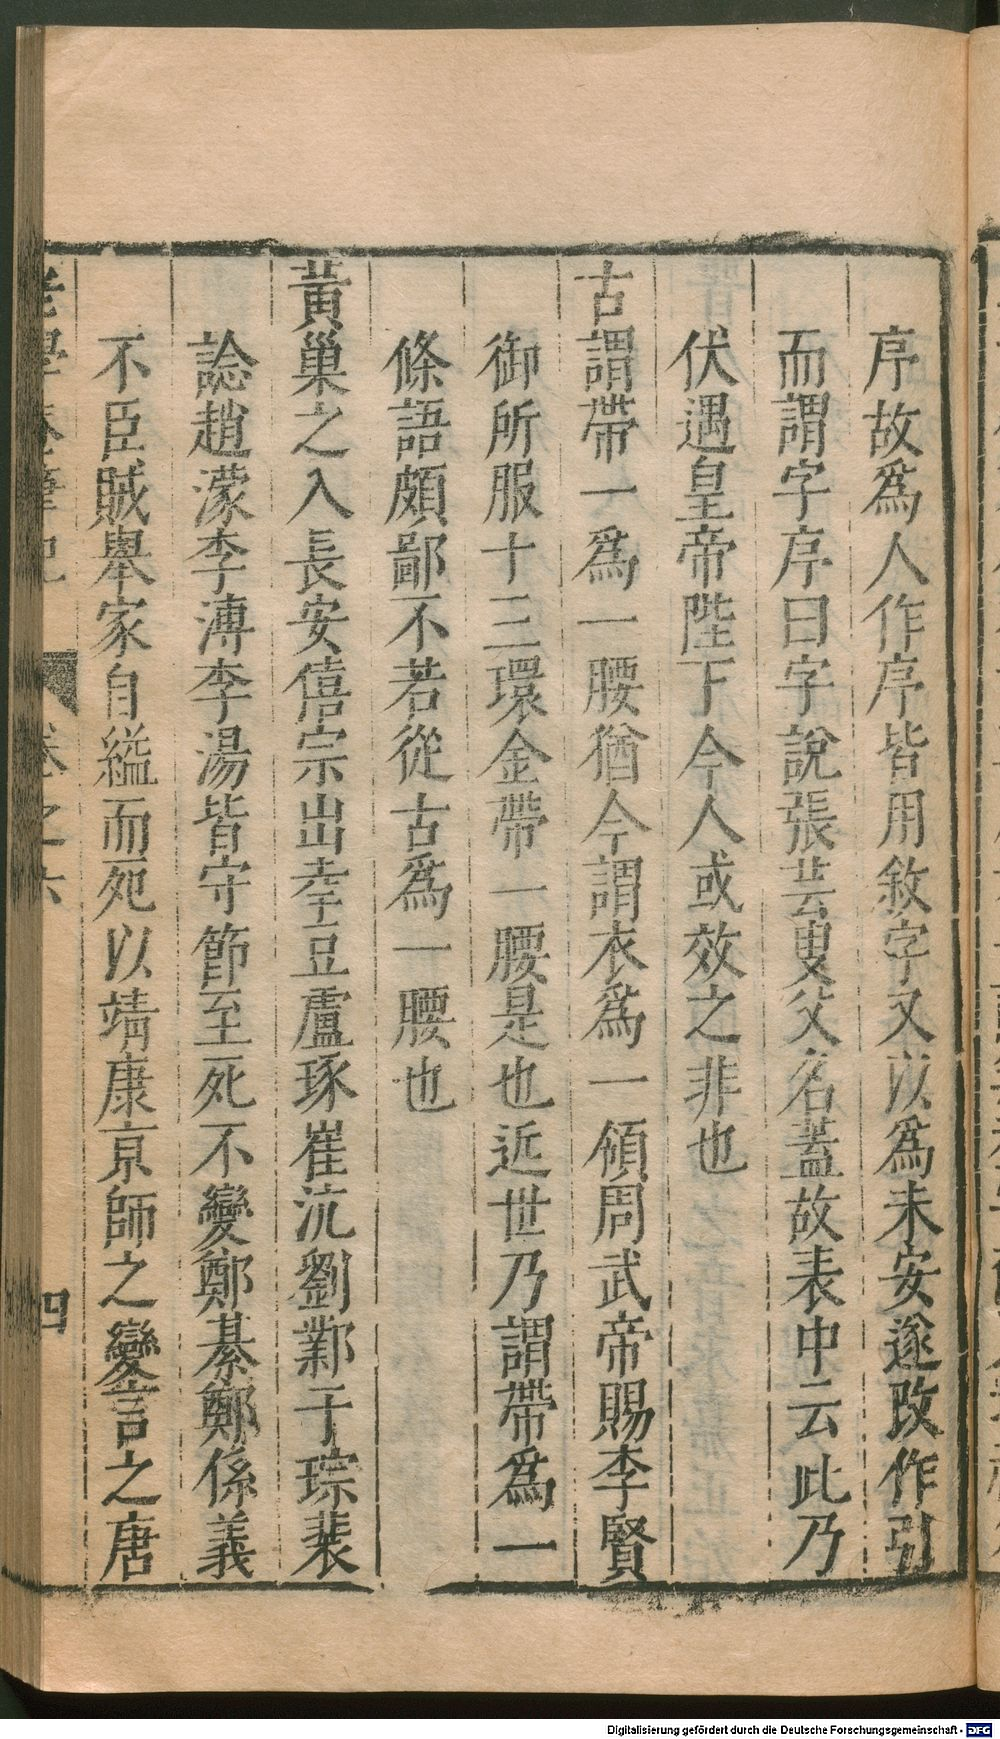 序故爲人作序皆用敘字又以爲未安遂改作引
而謂字序曰字說張芸叟父名蓋故表中云此乃
伏遇皇帝陛下今人或效之非也
古謂帶一爲一腰猶今謂衣爲一領周武帝賜李賢
御所服十三環金帶一腰是也近世乃謂帶爲一
條語頗鄙不若從古爲一腰也
黃巢之入長安僖宗出幸豆盧琢崔沆劉鄴于琮裴
諗趙濛李溥李湯皆守節至死不變鄭綦鄭係義
不臣賊舉家自縊而死以靖康京師之變言之唐
老學庵筆記 卷之六 四
Digitalisierung gefördert durch die Deutsche Forschungsgemeinschaft - DFG